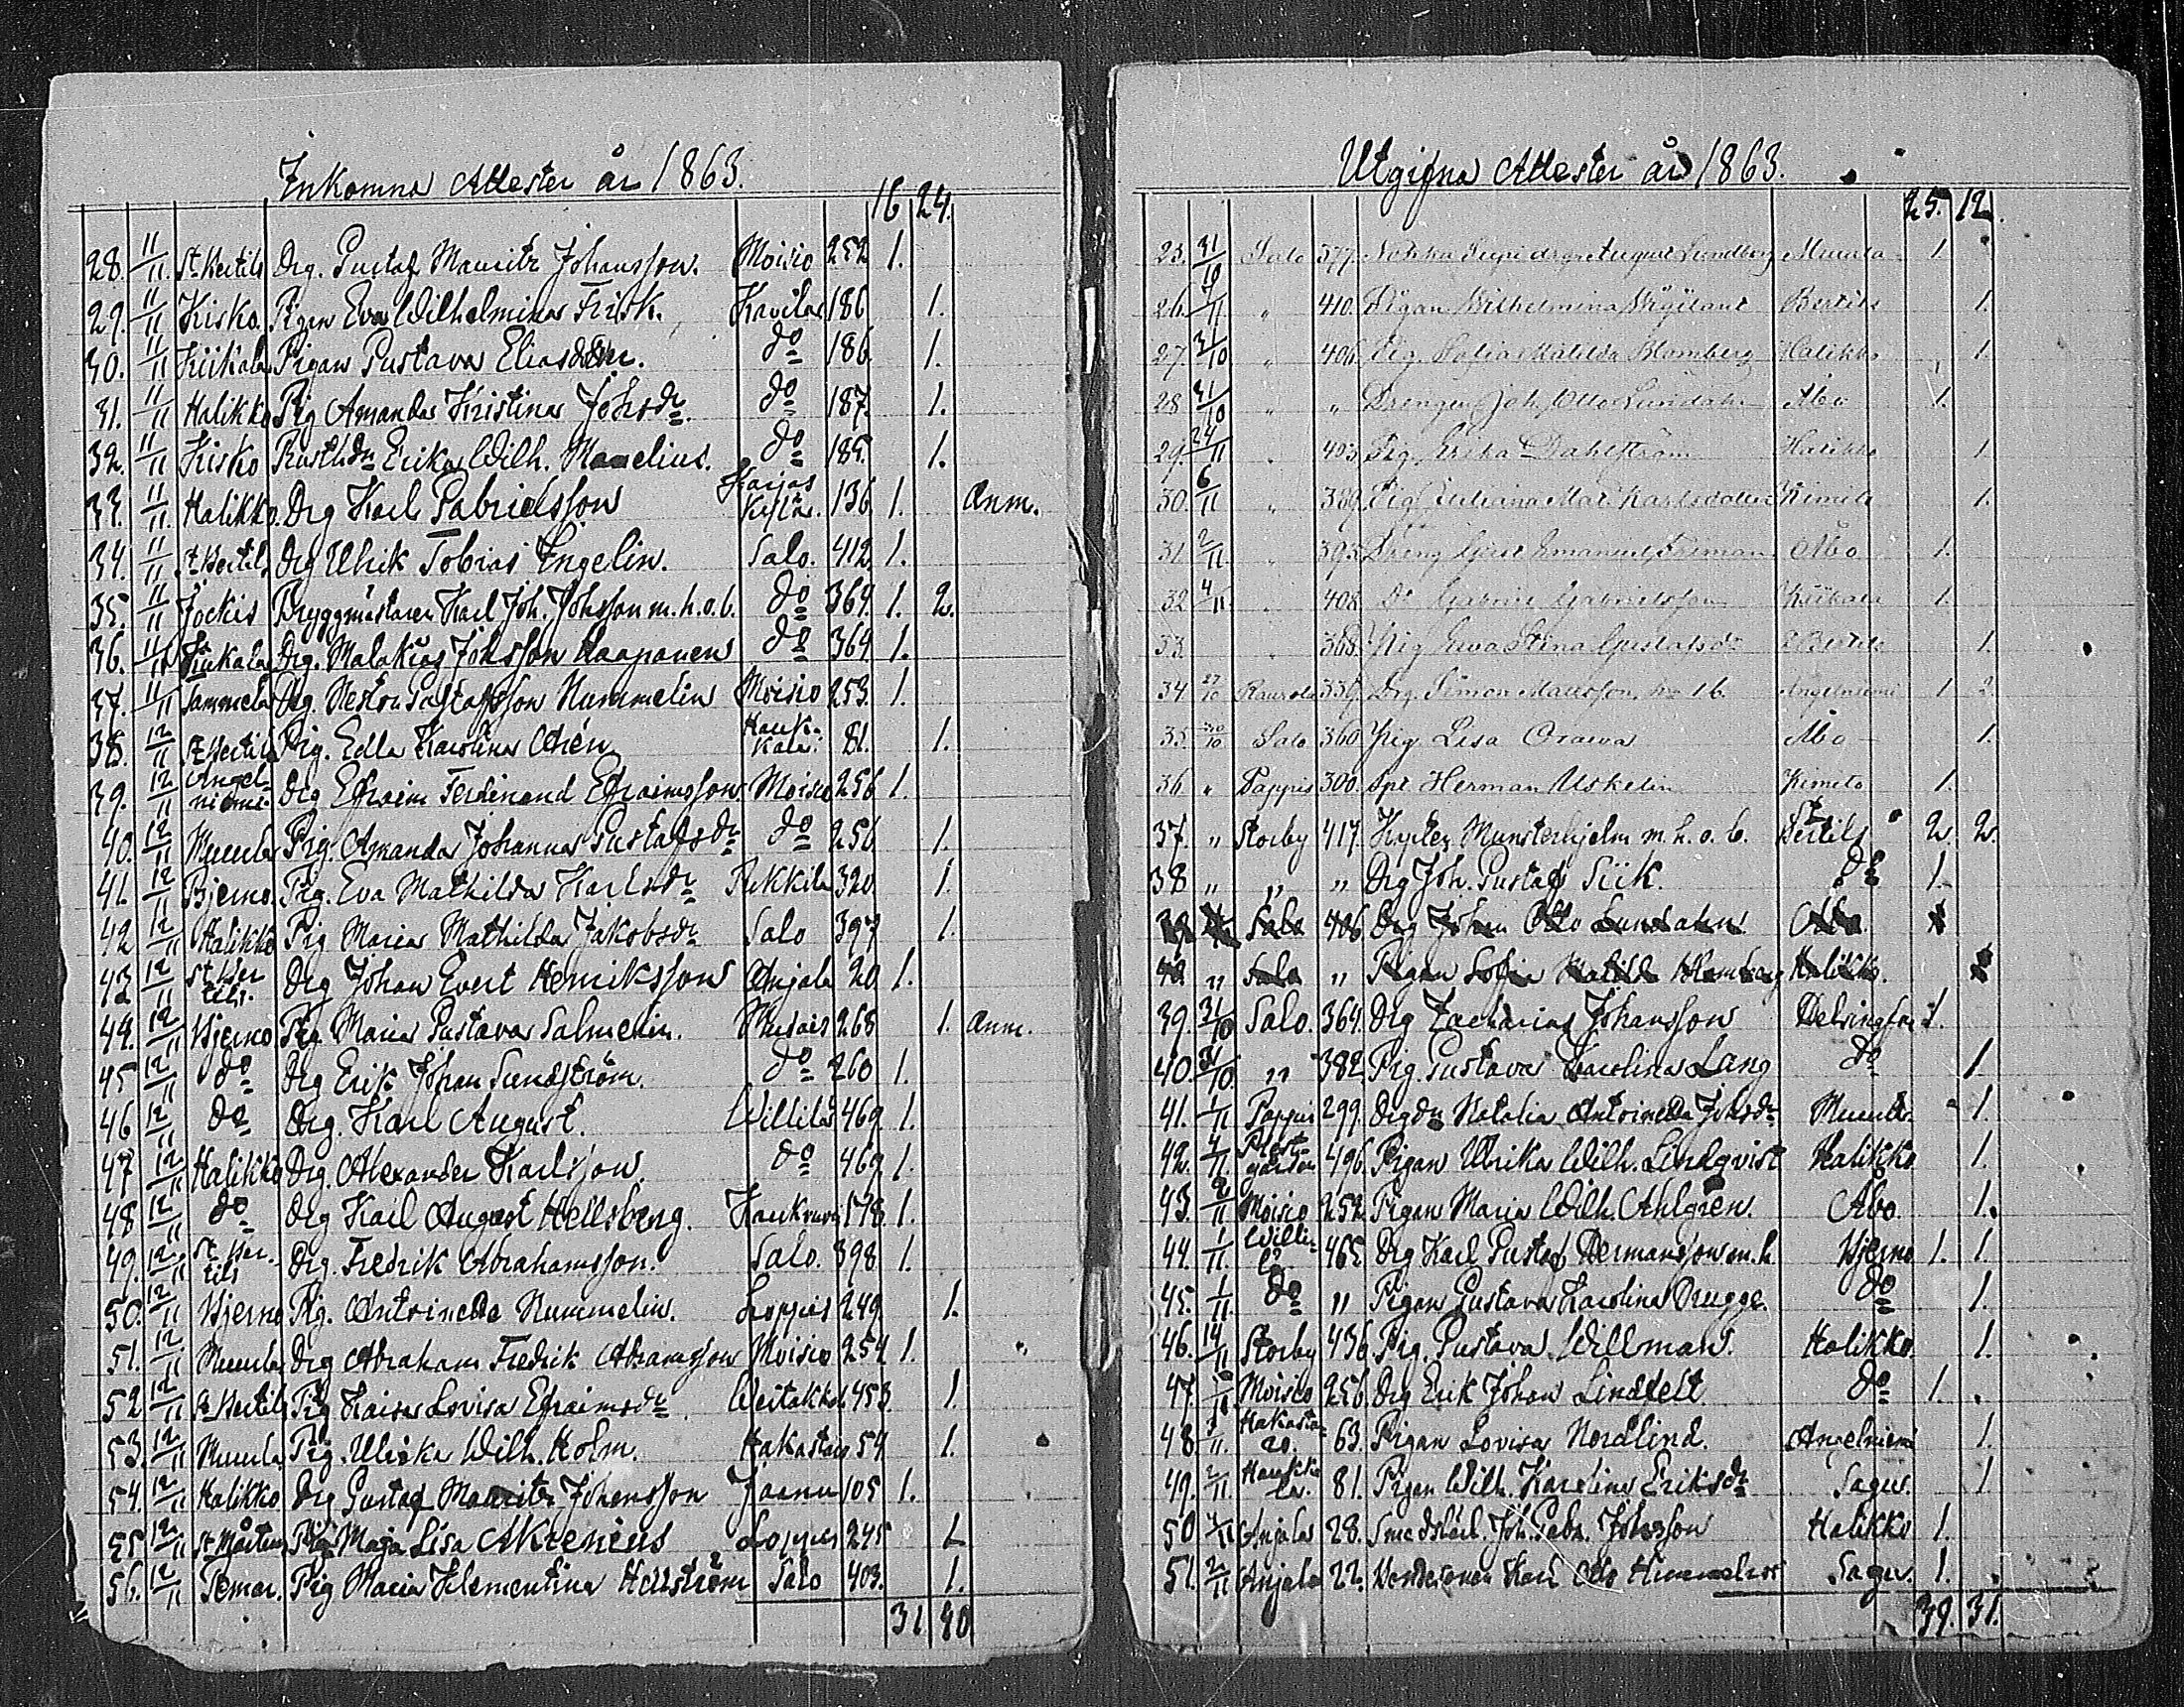 Inkomna Attester år 1863.
16 24.
28. 11/11 St Bertils Drg. Gustaf Mauritz Johansson. Moisio 252 1.
29. 11/11 Kisko. Pigan Eva Wilhelmina Frisk. Kavila 186 1.
30. 11/11 Kiikala Pigan Gustava Eliasdotter. do 186. 1.
31. 11/11 Halikko Pig Amanda Kristina Johsdr. do 187. 1.
32. 11/11 Kisko Rusthdr Erika Wilh. Manelius. do 185. 1.
33. 11/11. Halikko. Drg Karl Gabrielsson 136. 1. Anm.
34. 11/11 St Bertils Drg Ulrik Tobias Engelin. Salo. 412. 1.
35. 11/11 Jockis Bryggmästaren Karl Joh. Johsson m. h. o. b. do 369. 1. 2.
36. 11/11 Kiikala Drg. Malakias Johsson Haapanen do 369. 1.
37. 11/11 Tammela Drg. Nestor Gustafsson Nummelin Moisio 253. 1.
38. 12/11 St Bertils Pig. Edla Karolina Alén Haukkala. 81. 1.
39. 12/11 Angelniemi. Drg Efraim Ferdinand Efraimsson Moisio 256 1.
40. 12/11 Muurla Pig. Amanda Johanna Gustafsdr do 256. 1.
41. 12/11 Bjerno. Pig. Eva Mathilda Karlsdr Pukkila 320. 1.
42 12/11 Halikko Pig Maria Mathilda Jakobsdr Salo 397 1.
43 12/11 St Bertils. Drg Johan Evert Henriksson Anjala 20 1.
44. 12/11 Bjerno Pig. Maria Gustava Salmelin. 268 1. Anm.
45 12/11 do Drg Erik Johan Sundström. do 260 1.
46 12/11 do Drg. Karl August. Willilä 469. 1.
47 12/11 Halikko Drg. Alexander Karlsson. do 469. 1.
48 12/11 do Drg Karl August Hellsberg. 178. 1.
49. 12/11 St Bertils Drg. Fredrik Abrahamsson. Salo. 398 1.
50. 12/11 Bjerno Pig. Antoinetta Nummelin. Loppis 249. 1.
51. 12/11 Muurla Drg Abraham Fredrik Abramsson Moisio 254. 1.
52 12/11 St Bertils Pig Kaisa Lovisa Efraimsdr. Weitakko 453. 1.
53. 12/11 Muurla Pig. Ulrika Wilh. Holm. Hakastaro 54 1.
54. 12/11 Halikko Drg Gustaf Mauritz Johansson Joanu 105 1.
55 12/11 St Mårtens Pig Maja Lisa Akrenius Loppis 245 1.
56. 12/11 Pemar. Pig Maria Klementina Hellström Salo 403. 1.
31 40
Utgifna Attester år 1863.
25. 12.
25. 31/10 Salo 377. August Lundberg Muurla 1.
26. 11 „ 410. Pigan Wilhelmina Wigilant Bertils 1.
27. 31/10 „ 406. Pig. Sofia Matilda Blomberg Halikko 1.
28 31/10 „ „ Drengen Joh. Otto Lundahn Åbo 1.
29. 24/11 „ 403. Pig. Erika Dahlström Halikko 1.
30. 6/11 „ 389. Pig. Juliana Mat. Karlsdotter Kimito 1.
31 2/11 „ 393. Dreng Emanuel Friman Åbo 1.
32 4/11 „ 408. Do Gabriel Gabrielsson Kiikala 1.
33. „ 368. Pig Ewa Stina Gustafsdr St Bertils 1.
34 27/10 339. Drg. Simon Mattsson, Angelniemi 1 2.
35. 30/10 Salo 360. Pig Lisa Orawa Åbo 1.
36 „ Pappis 300. Spl Herman Uskelin Kimito 1.
37. „ Storby 417. Kapten Munsterhjelm m. h. o. b. St Bertils 2. 2.
38 „ „ „ Drg Joh. Gustaf Siik. do 1.
39. Salo 406 Drg Johan Otto Lundahn Åbo. 1
40. „ Salo „ Pigan Sofia Matilda Blomberg Halikko. 1
39. 31/10 Salo. 364. Drg Zacharias Johansson Helsingfors 1.
40. 31/10. „ 382. Pig. Gustava Karolina Lang do 1
41. 1/11 Pappis 299. Drgdr Natalia Antoinetta Johsdr Muurla. 1.
42. 4/11. Prestgården 496. Pigan Ulrika Wilh. Lindqvist Halikko 1.
43. 2/11 Moisio 252. Pigan Maria Wilh. Ahlgren. Åbo. 1.
44. 1/11 Willilä 465 Drg Karl Gustaf Hermansson m. h. Bjerno 1. 1.
45. 1/11. do „ Pigan Gustava Karolina Brugge. do 1.
46. 14/11 Storby 436. Pig. Gustava Willman. Halikko. 1.
47. 11 Moisio 256. Drg Erik Johan Lindfelt do 1.
48 11. Hakastaro. 63. Pigan Lovisa Nordlind. Angelniemi 1.
49. 2/11 Haukkala. 81. Pigan Wilh. Karolina Eriksdr Sagu. 1.
50 11 Anjala 28. Smedslärl. Joh. Gabr. Johsson Halikko 1.
51. 2/11 Anjala 22. Karl Otto Himmelroos Sagu. 1.
39. 31.